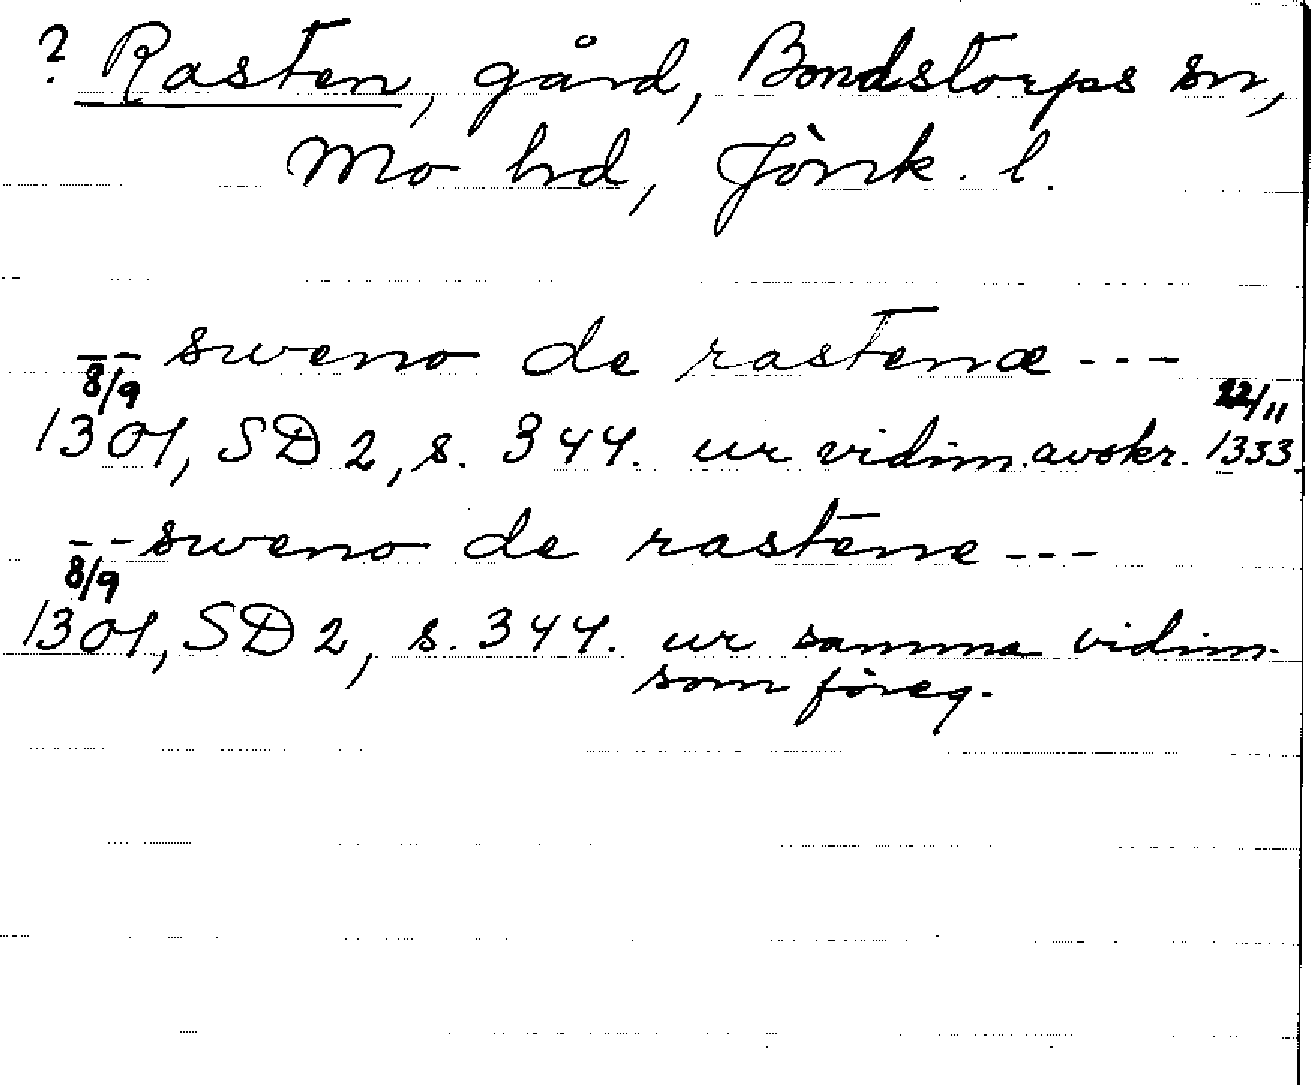 ? Rasten, gård, Bondstorps sn,
Mo hd, Jönk. l.
-- sweno de rastenæ ---
8/9 22/11
1301, SD 2, s. 344. ur vidim. avskr. 1353.
-- sweno de rastene ---
8/9
1301, SD 2, s. 344. ur samma vidim.
som föreg.